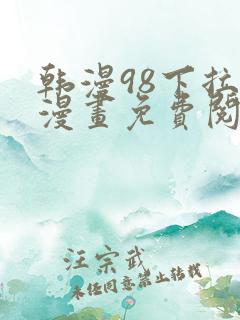 韩漫98下拉
漫畫免費閱
汪宗武
未经同意禁止转载